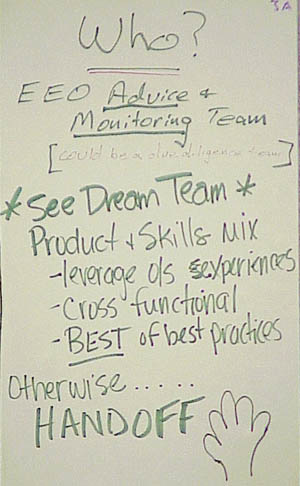 3A
Who?
EEO Advice &
Monitoring Team
[could be a due diligence team]
*See Dream Team*
Product & Skills Mix
-leverage o/s experiences
-cross functional
-BEST of best practices
Otherwise.....
HANDOFF